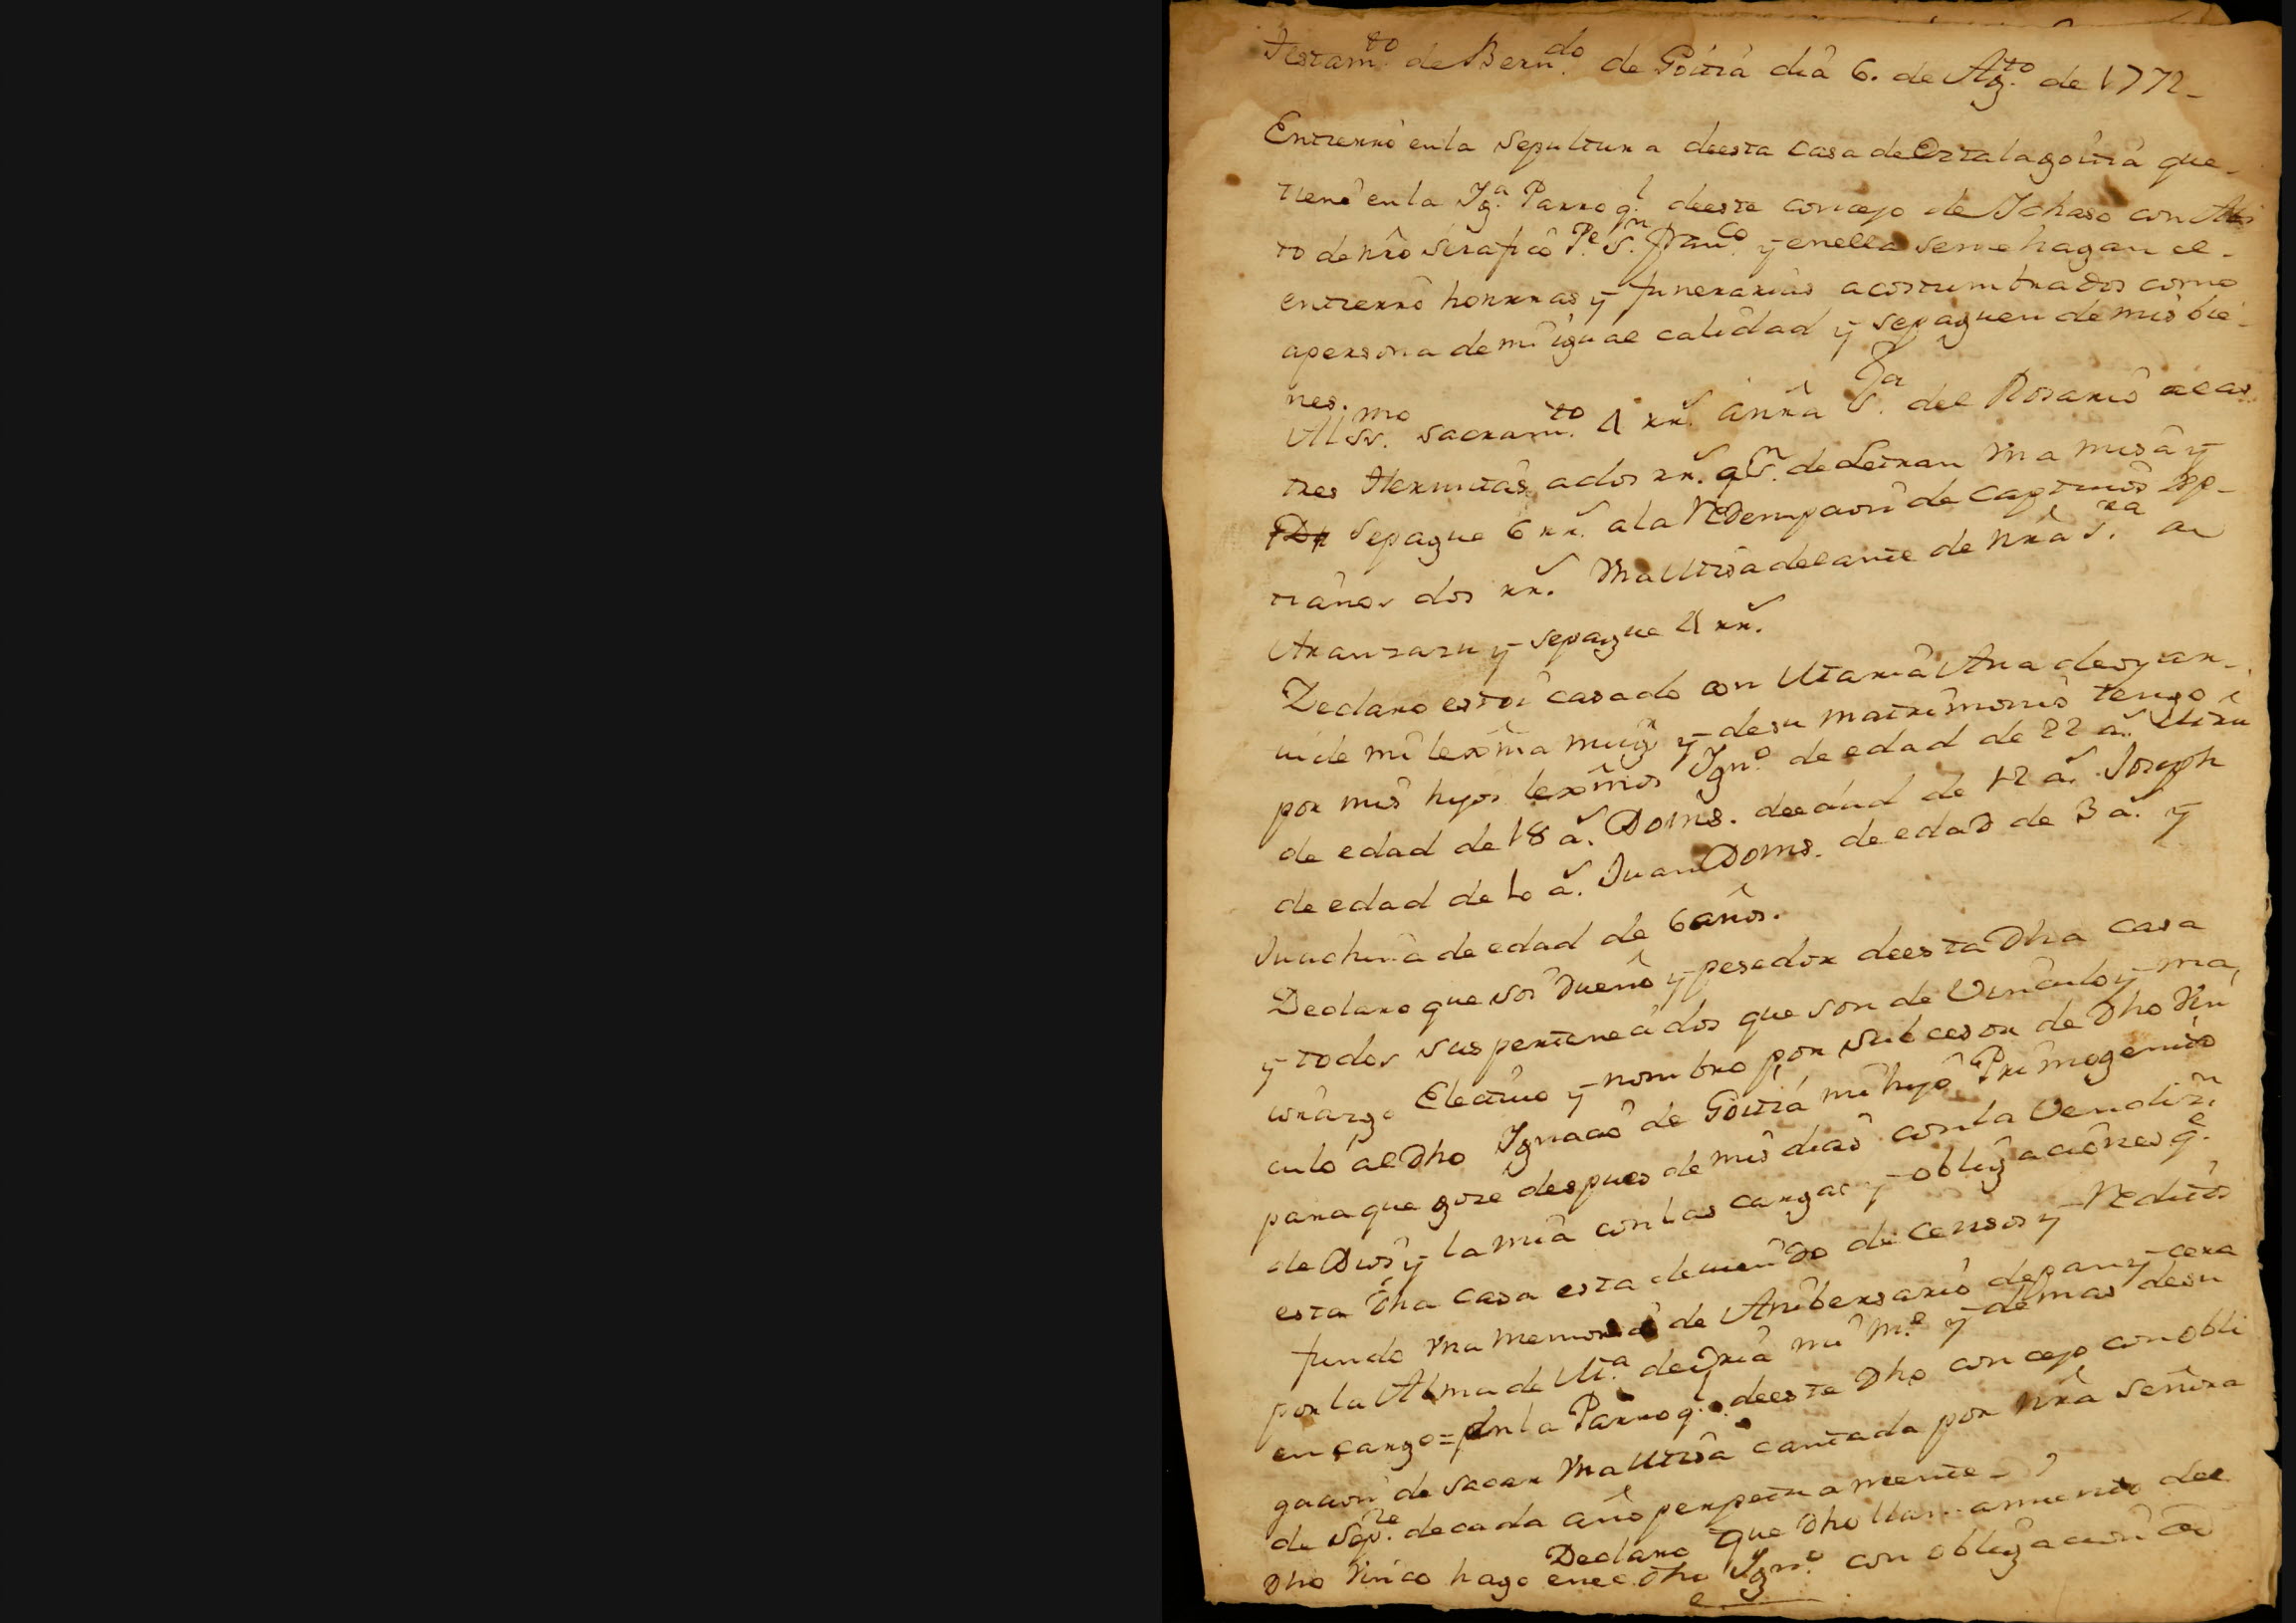 Testam.to de Bern.do de Goitia dia 6. de Ag.to de 1772_
Entierro en la Sepultura deesta Casa de Oztalagoitia que_
tiene en la Yg.a Parroq.l deeste concejo de Ichaso con Abi
to de nro Serafico P.e S.n Fran.co y en ella se me hagan el_
entierro honrras y funerarias acostumbrados como
a persona de mi igual calidad y se paguen de mis bie_
nes.
Al SS.mo Sacram.to 4 rr.s a nra S.ra del Rosario a las
tres Hermitas a dos rr.s de Leiran Ma misa y
Se pague 6 rr.s a la Redempcion de Captivos xp_
tianos dos rr.s Ma Misa delante de nra S.ra de
Aranzazu y se pague 4 rr.s
Declaro estoi casado con Maria Ana de oyar_
vide mi lexma mug.r y de su matrimonio tengo
por mis hijos lexmos Ygn.o de edad de 22 a.s Miru
de edad de 18 a.s Doms. de edad de 12 a.s Joseph
de edad de 10 a.s Juan Doms. de edad de 3 a.s y
Juachina de edad de 6 años.
Declaro que soi Dueño y posedor de esta Dha Casa
y todos sus pertenecidos que son de Vinculo y ma,
iorazgo Electivo y nombro por Subcesor de Dho Vin
culo al Dho Ygnacio de Goitia mi hijo Primogenito
para que goze despues de mis dias con la Vendiz.n
de Dios y la mia con las cargas y obligaciones q.e
esta Dha Casa esta deviendo de Censos y Reditos
fundo Ma memoria de Anibersario de pan y cera
por la Alma de M.a de iria mi M.e y demas de su
encargo = en la Parroq.l deeste Dho concejo con obli
gacion de sacar Ma Misa cantada por nra Señora
de Sep.re de cada año perpetuamente_
Declaro que Dho llamamiento del
Dho Vinco hago en el Dho Ygn.o con obligacion de